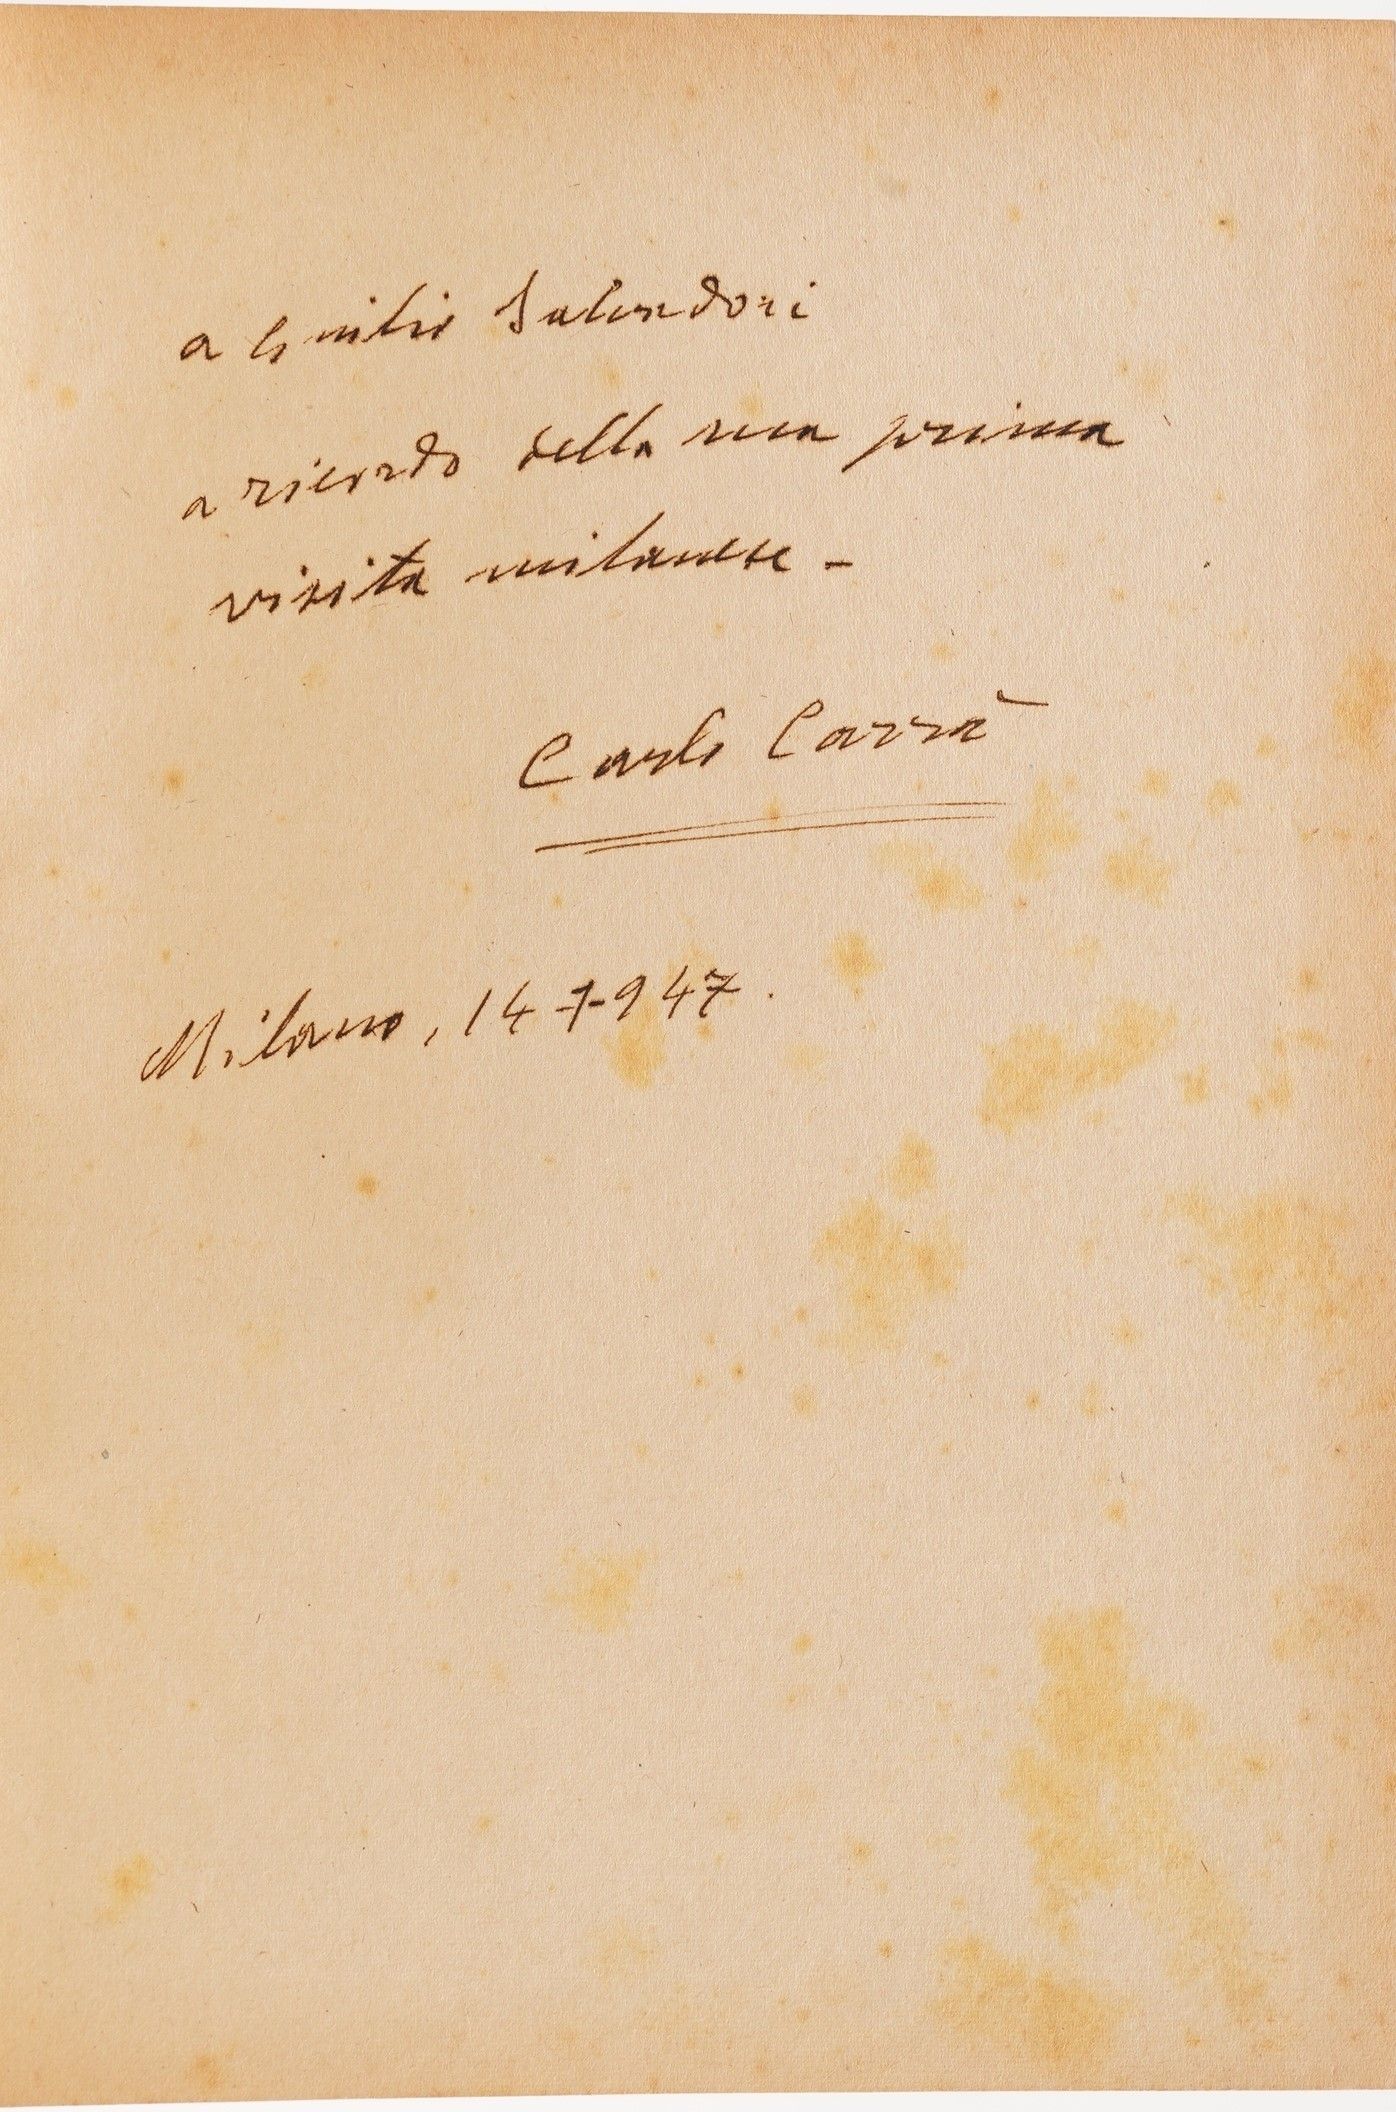 a Emilio Salvadori
a ricordo della sua prima
visita milanese -
Carlo Carrà
Milano, 14-7-947.